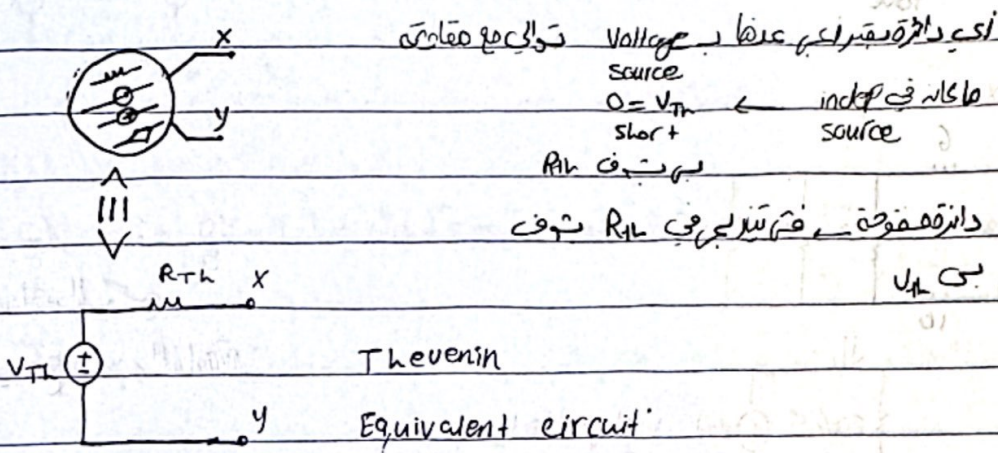 أي دائرة بقدر اعبر عنها بـ Voltage source توالي مع مقاومة
ما كان في indep source ← 0 = VTh
short
بس بتشوف RTh
دائرة مفتوحة ← فش تيار يمر في RTh بتشوف
بس VTh
X
y
RTh
X
VTh
+
-
y
Thevenin
Equivalent circuit